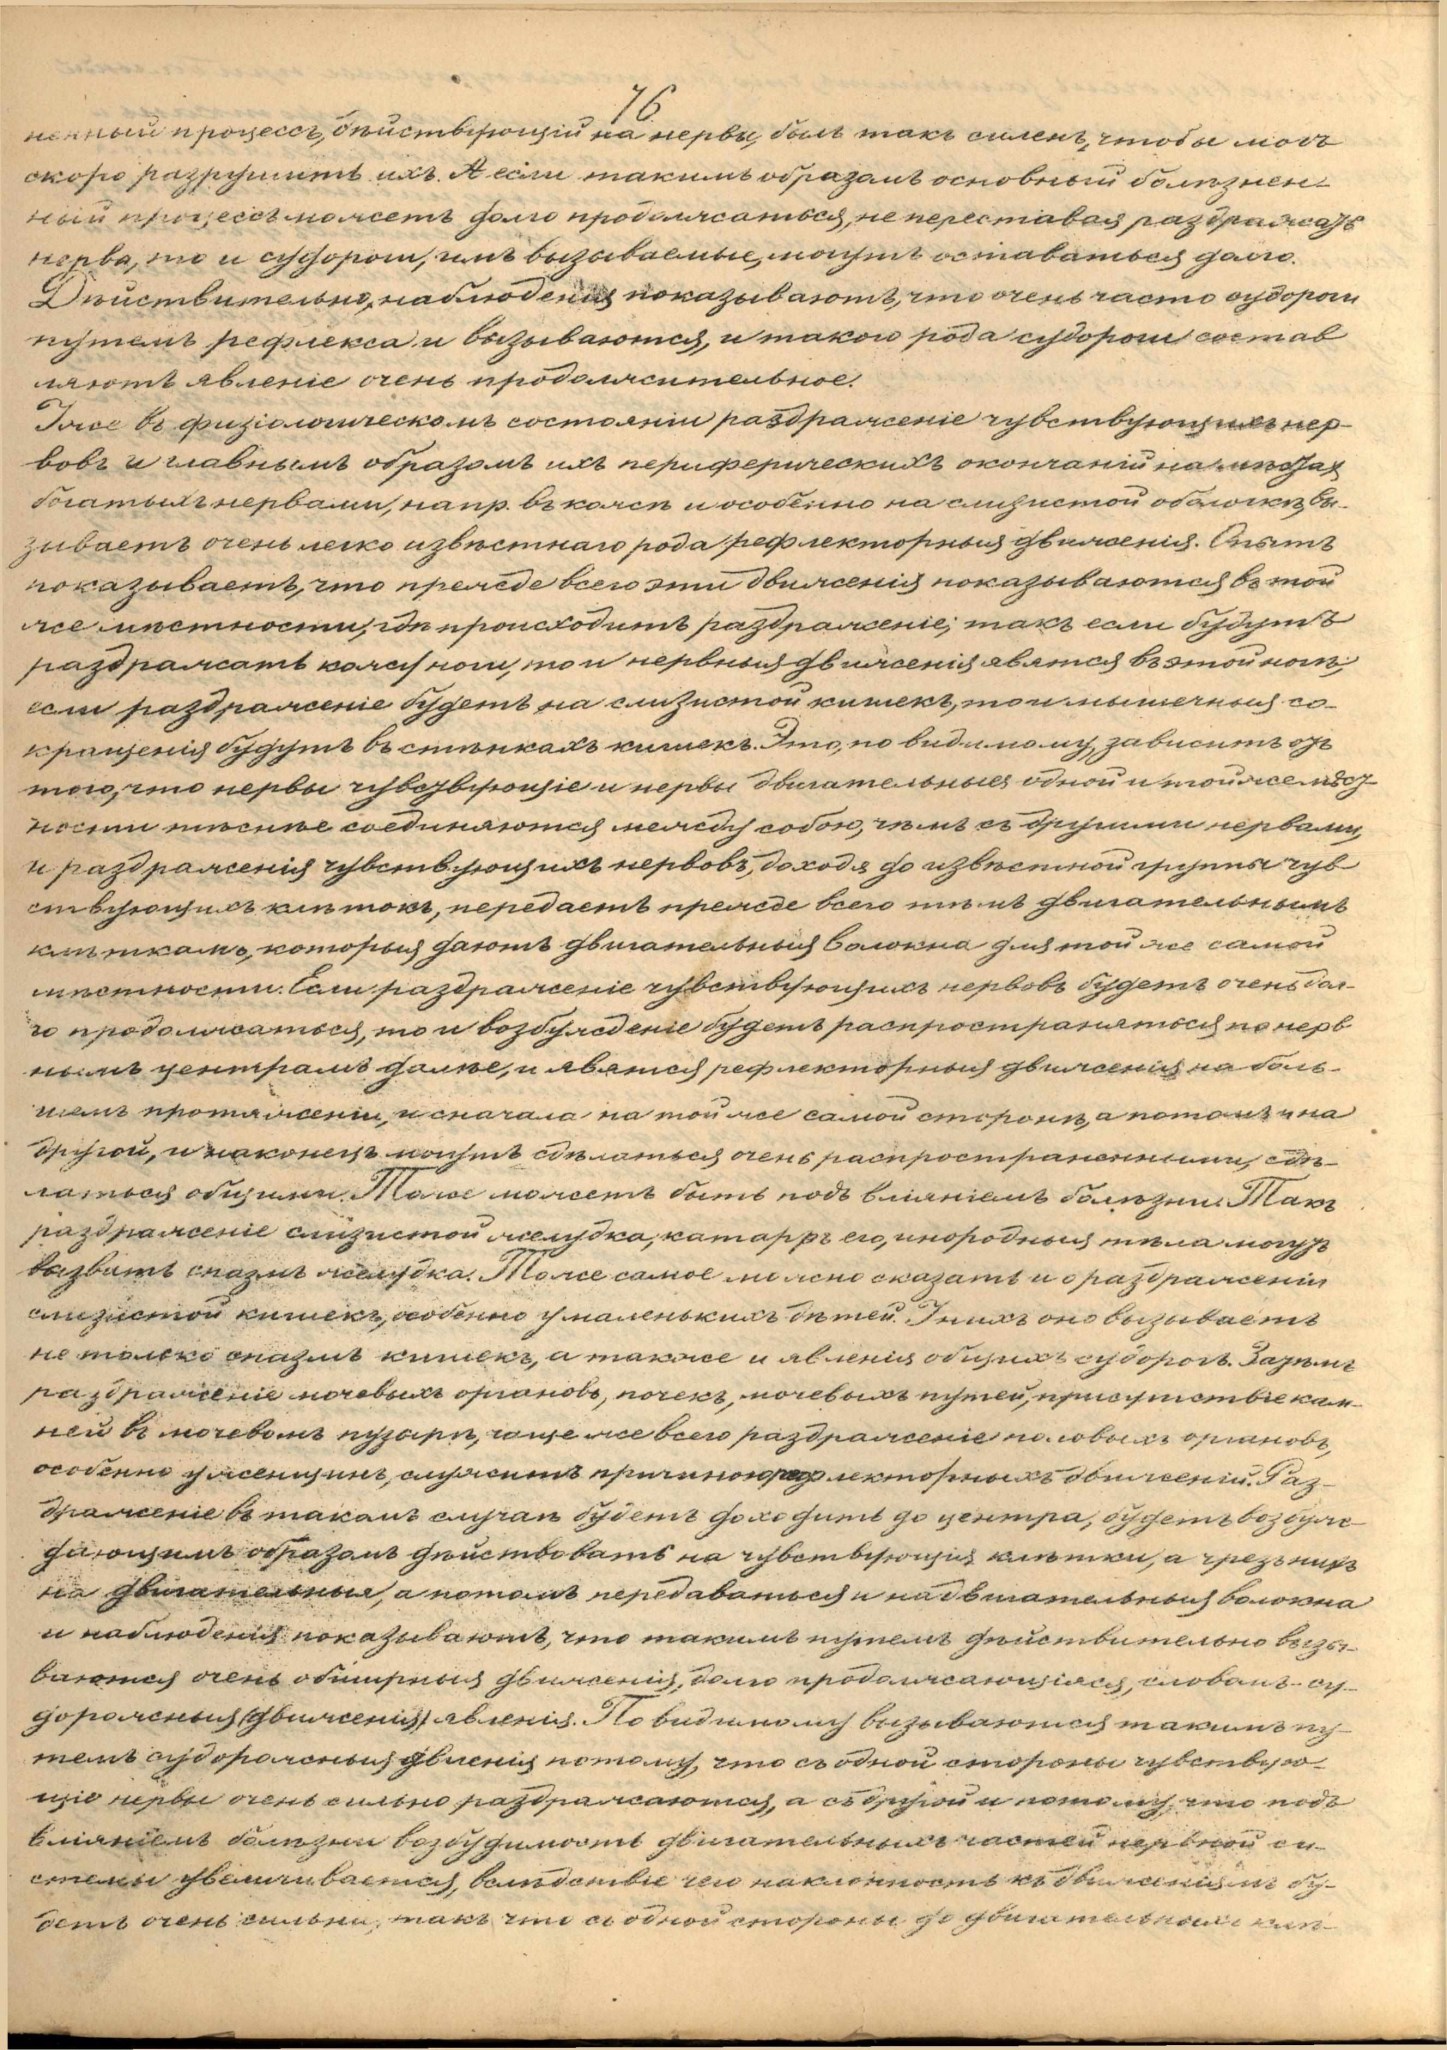 76
ненный процессъ, дѣйствующій на нервы, былъ такъ силенъ, чтобы могъ
скоро разрушить ихъ. А если такимъ образомъ основный болѣзнен-
ный процессъ можетъ долго продолжаться, не переставая раздражать
нерва, то и судороги, имъ вызываемые, могутъ оставаться долго.
Дѣйствительно, наблюденія показываютъ, что очень часто судороги
путемъ рефлекса и вызываются, и такого рода судороги состав
ляютъ явленіе очень продолжительное.
Уже въ физіологическомъ состояніи раздраженіе чувствующихъ нер-
вовъ и главнымъ образомъ ихъ периферическихъ окончаній на мѣстах
богатыхъ нервами, напр. въ кожѣ и особенно на слизистой оболочкѣ, вы-
зываетъ очень легко извѣстнаго рода рефлекторныя движенія. Опытъ
показываетъ, что прежде всего эти движенія показываются въ той
же мѣстности, гдѣ происходитъ раздраженіе; такъ если будутъ
раздражать кожу ноги, то и нервныя движенія явятся въ этой ногѣ;
если раздраженіе будетъ на слизистой кишекъ, то и мышечныя со-
кращенія будутъ въ стѣнкахъ кишекъ. Это, по видимому, зависитъ отъ
того, что нервы чувствующіе и нервы двигательные одной и той же мѣст-
ности тѣснѣе соединяются между собою, чѣмъ съ другими нервами,
и раздраженія чувствующихъ нервовъ, доходя до извѣстной группы чув
ствующихъ клѣтокъ, передаетъ прежде всего тѣмъ двигательнымъ
клѣткамъ, которыя даютъ двигательныя волокна для той же самой
мѣстности. Если раздраженіе чувствующихъ нервовъ будетъ очень дол-
го продолжаться, то и возбужденіе будетъ распространяться по нерв
нымъ центрамъ далѣе, и явятся рефлекторныя движенія на боль-
шемъ протяженіи, и сначала на той же самой сторонѣ, а потомъ и на
другой, и наконецъ могутъ сдѣлаться очень распространенными, сдѣ-
латься общими. Тоже можетъ быть подъ вліяніемъ болѣзни. Такъ
раздраженіе слизистой желудка, катарръ его, инородныя тѣла могутъ
вызвать спазмъ желудка. Тоже самое можно сказать и о раздраженіи
слизистой кишекъ, особенно у маленькихъ дѣтей. У нихъ оно вызываетъ
не только спазмъ кишекъ, а также и явленія общихъ судорогъ. Затѣмъ
раздраженіе мочевыхъ органовъ, почекъ, мочевыхъ путей, присутствіе кам-
ней въ мочевомъ пузырѣ, чаще же всего раздраженіе половыхъ органовъ,
особенно у женщинъ, служитъ причиною рефлекторныхъ движеній. Раз-
драженіе въ такомъ случаѣ будетъ доходить до центра, будетъ возбуж-
дающимъ образомъ дѣйствовать на чувствующія клѣтки, а чрезъ нихъ
на двигательныя, а потомъ передаваться и на двигательныя волокна
и наблюденія показываютъ, что такимъ путемъ дѣйствительно вызы-
ваются очень обширныя движенія, долго продолжающіяся, словомъ су-
дорожныя (движенія) явленія. По видимому вызываются такимъ пу-
темъ судорожныя явленія потому, что съ одной стороны чувствую-
щіе нервы очень сильно раздражаются, а съ другой и потому, что подъ
вліяніемъ болѣзни возбудимость двигательныхъ частей нервной си-
стемы увеличивается, вслѣдствіе чего наклонность къ движеніямъ бу-
детъ очень сильна, такъ что съ одной стороны до двигательныхъ клѣ-